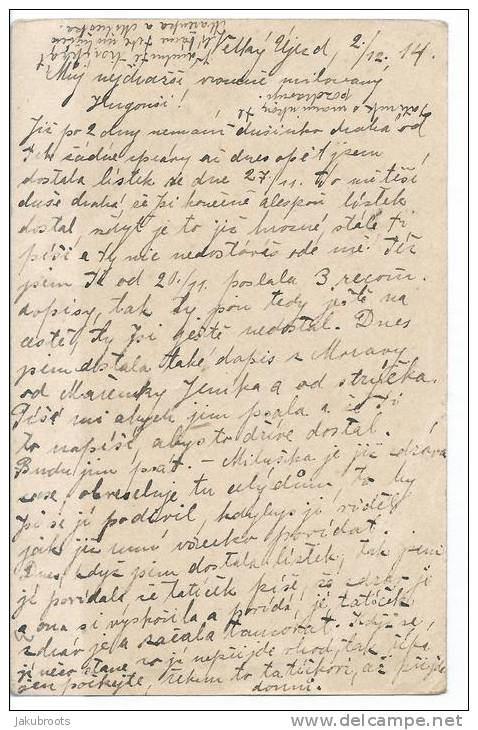 Velký Újezd 2./12. 14.
Můj nejdražší vroucně milovaný
Hugouši!
Již po 2 dny nemám dušinko drahá od
Tebe žádné zprávy až dnes opět jsem
dostala lístek ze dne 27./11. To mě těší
duše drahá že jsi konečně alespoň lístek
dostal neb je to již hrozné, stále Ti
píši a Ty nic nedostáváš ode mě. Též
jsem Ti od 20./11. poslala 3 recom.
dopisy, tak ty jsou tedy ještě na
cestě, ty jsi ještě nedostal. Dnes
jsem dostala také dopis z Moravy
od Mařenky Jeníka a od strýčka.
Píše mi abych jim psala a že Ti
to napíše, abys to dříve dostal.
Budu jim psát. – Miluška je již zdráva
zase obveseluje tu celý dům, to by
jsi se jí podivil, kdybys ji viděl
jak již umí všecko povídat.
Dnes, když jsem dostala lístek, tak jsem
jí povídala že tatíček píše, že zdráv je
a ona si výskočila a povídá, je tatíček
zdráv je a začala tancovat. Když se
jí něco stane co jí nepřijde vhod, tak
jen počkejte, řeknu to tatíčkovi, až přijde
domů.
Mařenka a Miluška.
jakubroots
delcampe.net